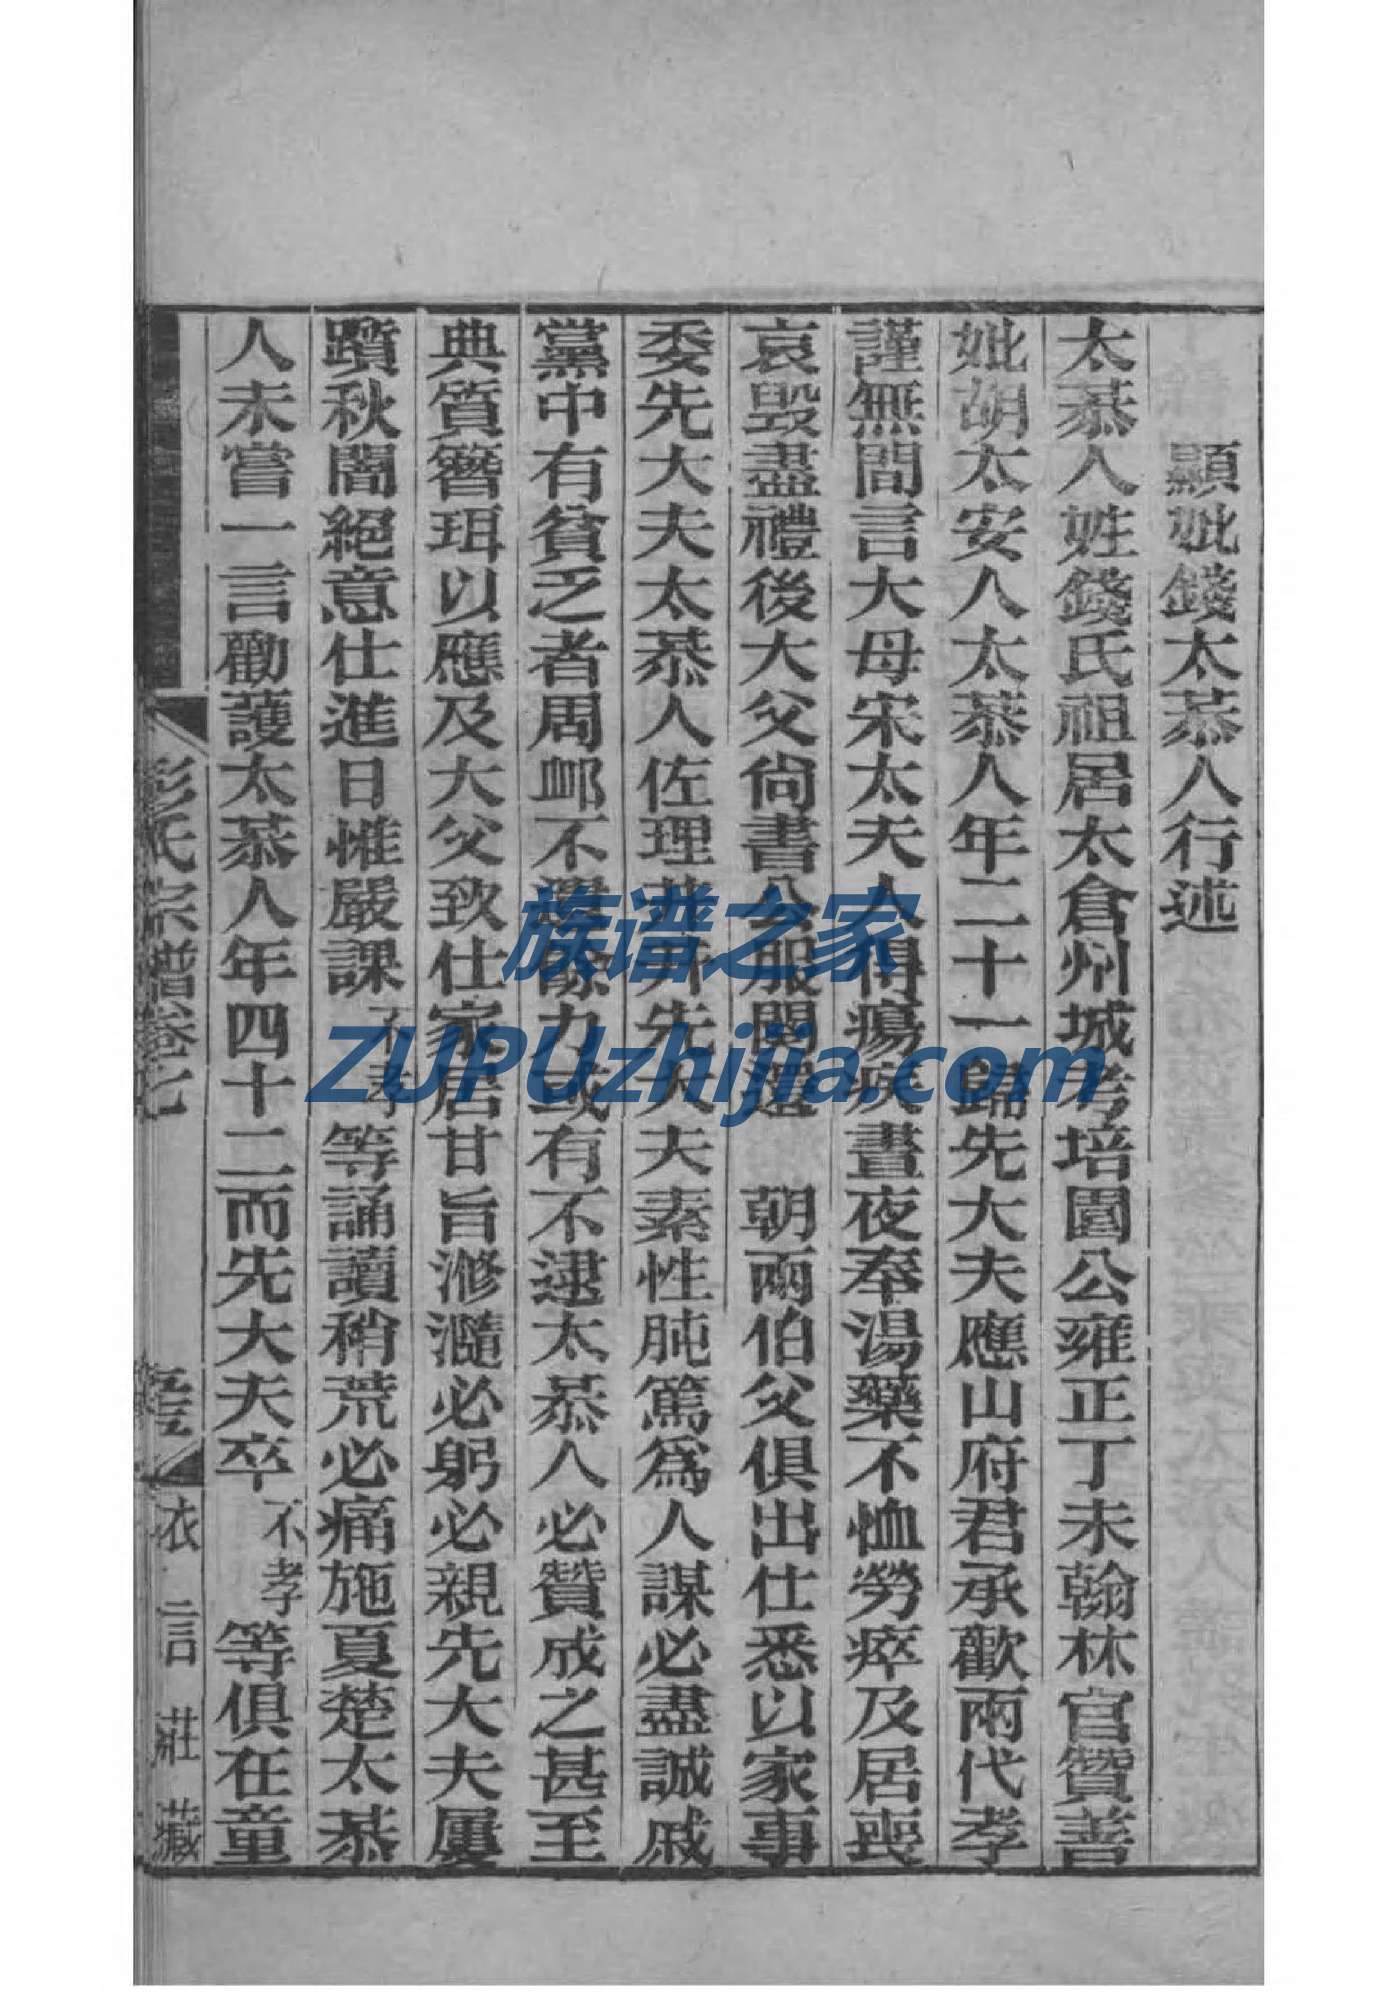 顯妣錢太恭人行述
太恭人姓錢氏祖居太倉州城考培園公雍正丁未翰林官贊善
妣胡太安人太恭人年二十一歸先大夫應山府君承歡兩代孝
謹無間言大母宋太夫人得瘍疾晝夜奉湯藥不恤勞瘁及居喪
哀毀盡禮後大父尙書公服闋還　朝兩伯父俱出仕悉以家事
委先大夫太恭人佐理井井先大夫素性肫篤爲人謀必盡誠戚
黨中有貧乏者周卹不遺餘力或有不逮太恭人必贊成之甚至
典質簪珥以應及大父致仕家居甘旨滫瀡必躬必親先大夫屢
躓秋闈絕意仕進日惟嚴課不孝等誦讀稍荒必痛施夏楚太恭
人未嘗一言勸護太恭人年四十二而先大夫卒不孝等俱在童
彭氏宗譜卷七
衣言莊藏
族谱之家
ZUPUzhijia.com